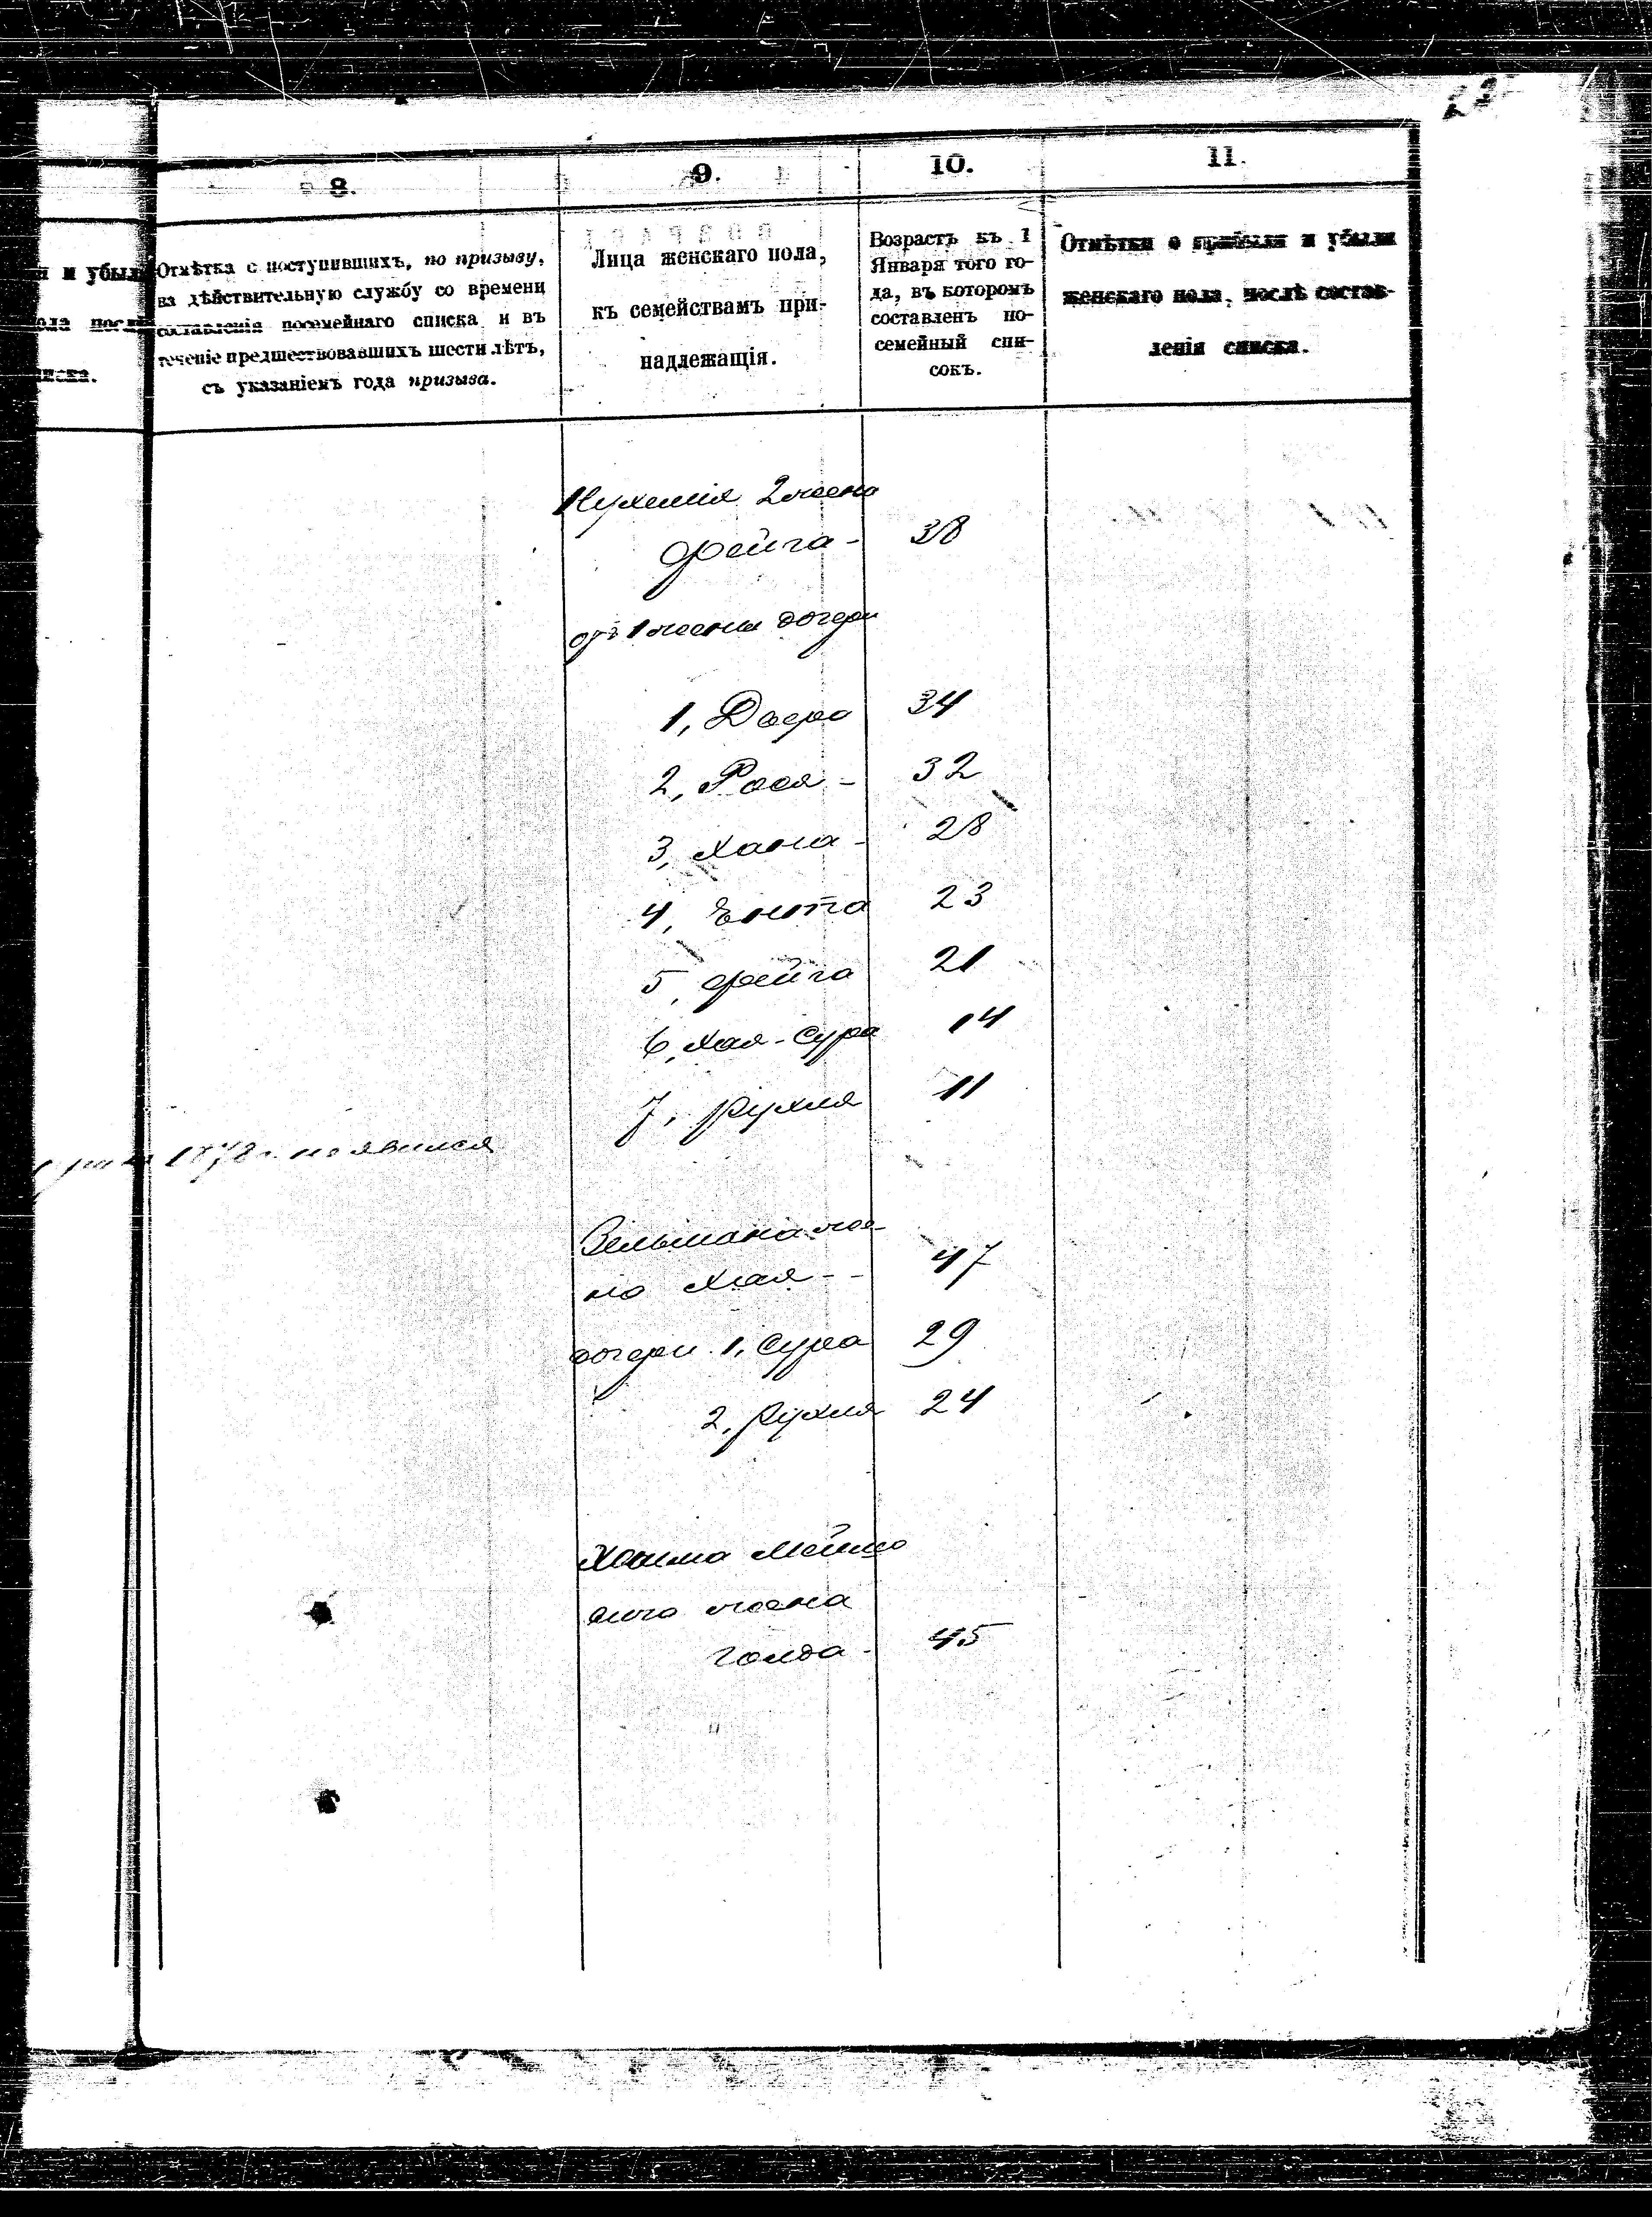 22
8.
9.
10.
11.
и убыл
ола посл
писка.
Отмѣтка о поступившихъ, по призыву,
на дѣйствительную службу со времени
составленія посемейнаго списка и въ
теченіе предшествовавшихъ шести лѣтъ,
съ указаніемъ года призыва.
Лица женскаго пола,
къ семействамъ при-
надлежащія.
Возрастъ къ 1
Января того го-
да, въ которомъ
составленъ по-
семейный спи-
сокъ.
Отмѣтки о прибыли и убыли
женскаго пола, послѣ состав-
ленія списка.
Нухимія 2 жена
Фейга - 38
отъ 1 жены дочери
1, Двера 34
2, Рося - 32
3, Хана - 28
4, Ента 23
5, Фейга 21
6, Хая-Сура 14
7, Рухля 11
1878 г. не явился
Зельмана же-
на Хая - - 47
дочери 1, Сура 29
2, Рухля 24
Хаима Мейшо
жена
Голда - 45